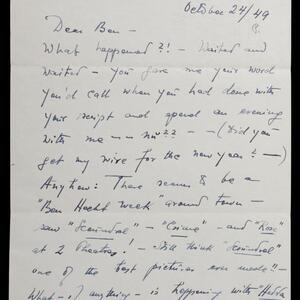 October 24/49
Dear Ben —
What happened?! — Waited and
Waited — you gave me your word
you'd call when you had done with
your script and spend an evening
with me — — — (Did you
get my wire for the new year? —)
Anyhow: There seems to be a
"Ben Hecht week" around town —
saw "Scoundrel" — "Crime" — and "Rose"
at 2 Theatres! — Still think "Scoundrel"
one of the best pictures ever made!! —
What — if anything — is happening with